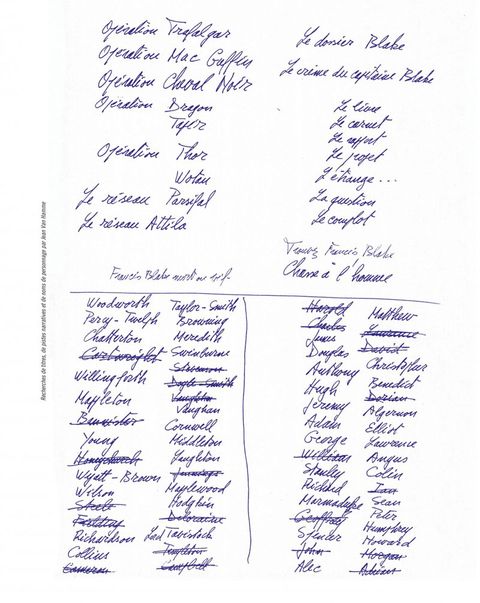 Opération Trafalgar
Opération Mac Guffin
Opération Cheval Noir
Opération Dragon
Tapir
Opération Thor
Wotan
Le réseau Parsifal
Le réseau Attila
Le dossier Blake
Le crime du capitaine Blake
Le livre
Le carnet
Le rapport
Le projet
L'échange...
La question
Le complot
Trouvez Francis Blake
Chasse à l'homme
Francis Blake mort ou vif
Woodworth
Percy-Twelph
Chatterton
Cartwright
Willingforth
Mapleton
Bannister
Young
Honeychurch
Wyatt-Brown
Wilson
Steele
Fielding
Richardson
Collins
Cameron
Taylor-Smith
Browning
Meredith
Swinburne
Stevenson
Doyle-Smith
Vaughan
Cornwell
Middleton
Langhton
Jennings
Maplewood
Hodgkin
Deloraine
Lord Tavistock
Singleton
Campbell
Harold
Charles
James
Douglas
Anthony
Hugh
Jeremy
Adam
George
William
Stanley
Richard
Marmaduke
Geoffrey
Spencer
John
Alec
Matthew
Lawrence
David
Christopher
Benedict
Dorian
Algernon
Elliot
Lawrence
Angus
Colin
Ian
Sean
Peter
Humphrey
Howard
Morgan
Adrian
Recherches de titres, de pistes narratives et de noms de personnage par Jean Van Hamme